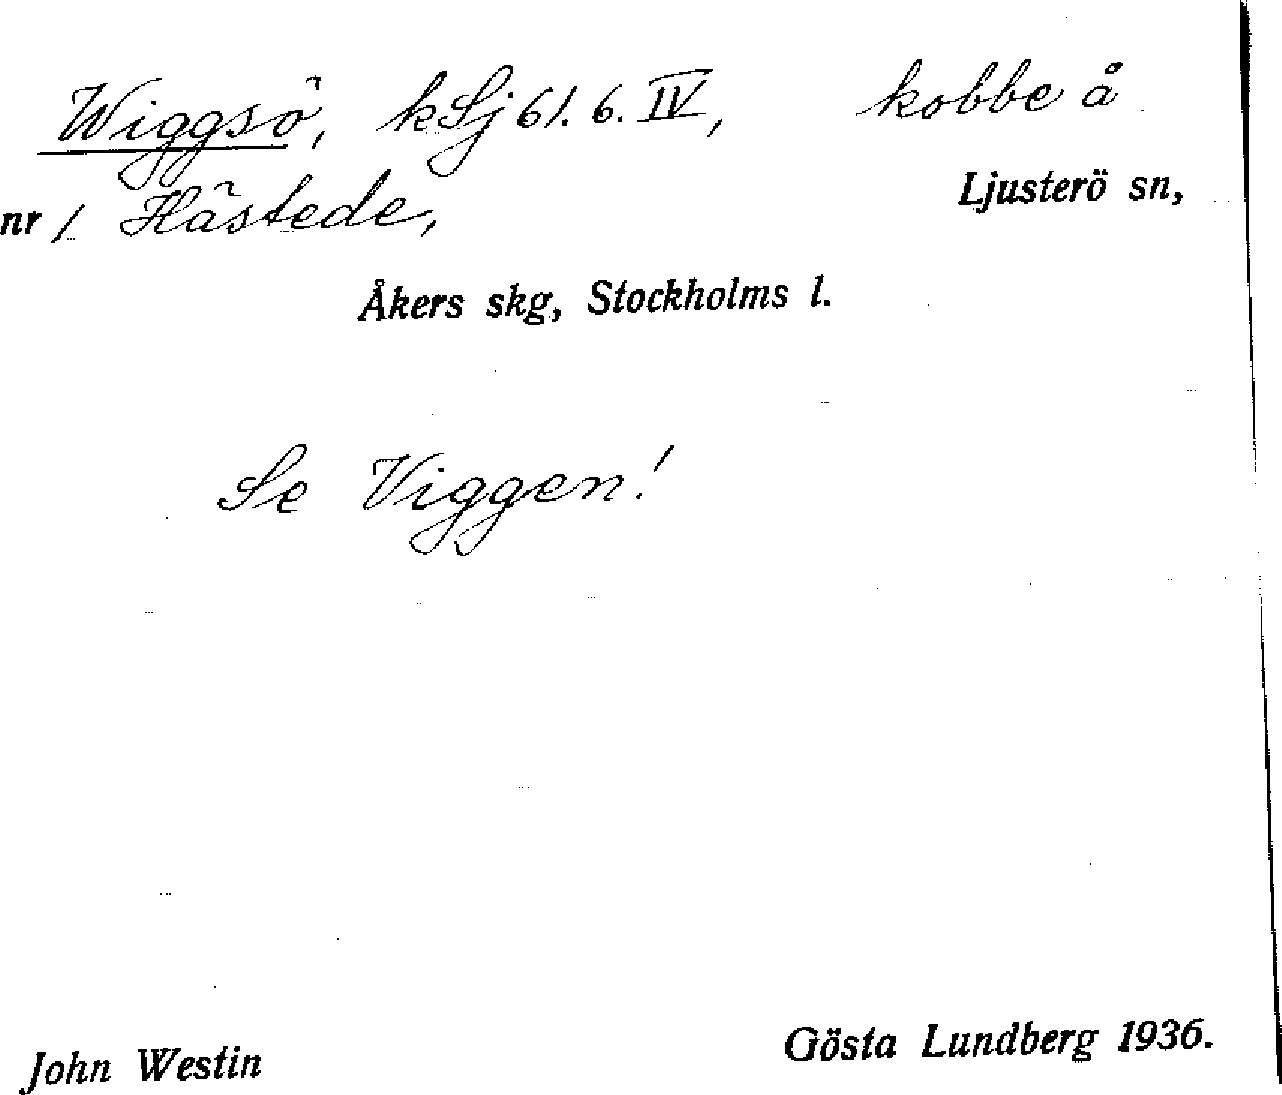 Wiggsö, kSj 61. 6. IV, kobbe å
nr 1 Hästede, Ljusterö sn,
Åkers skg, Stockholms l.
Se Viggen!
John Westin Gösta Lundberg 1936.